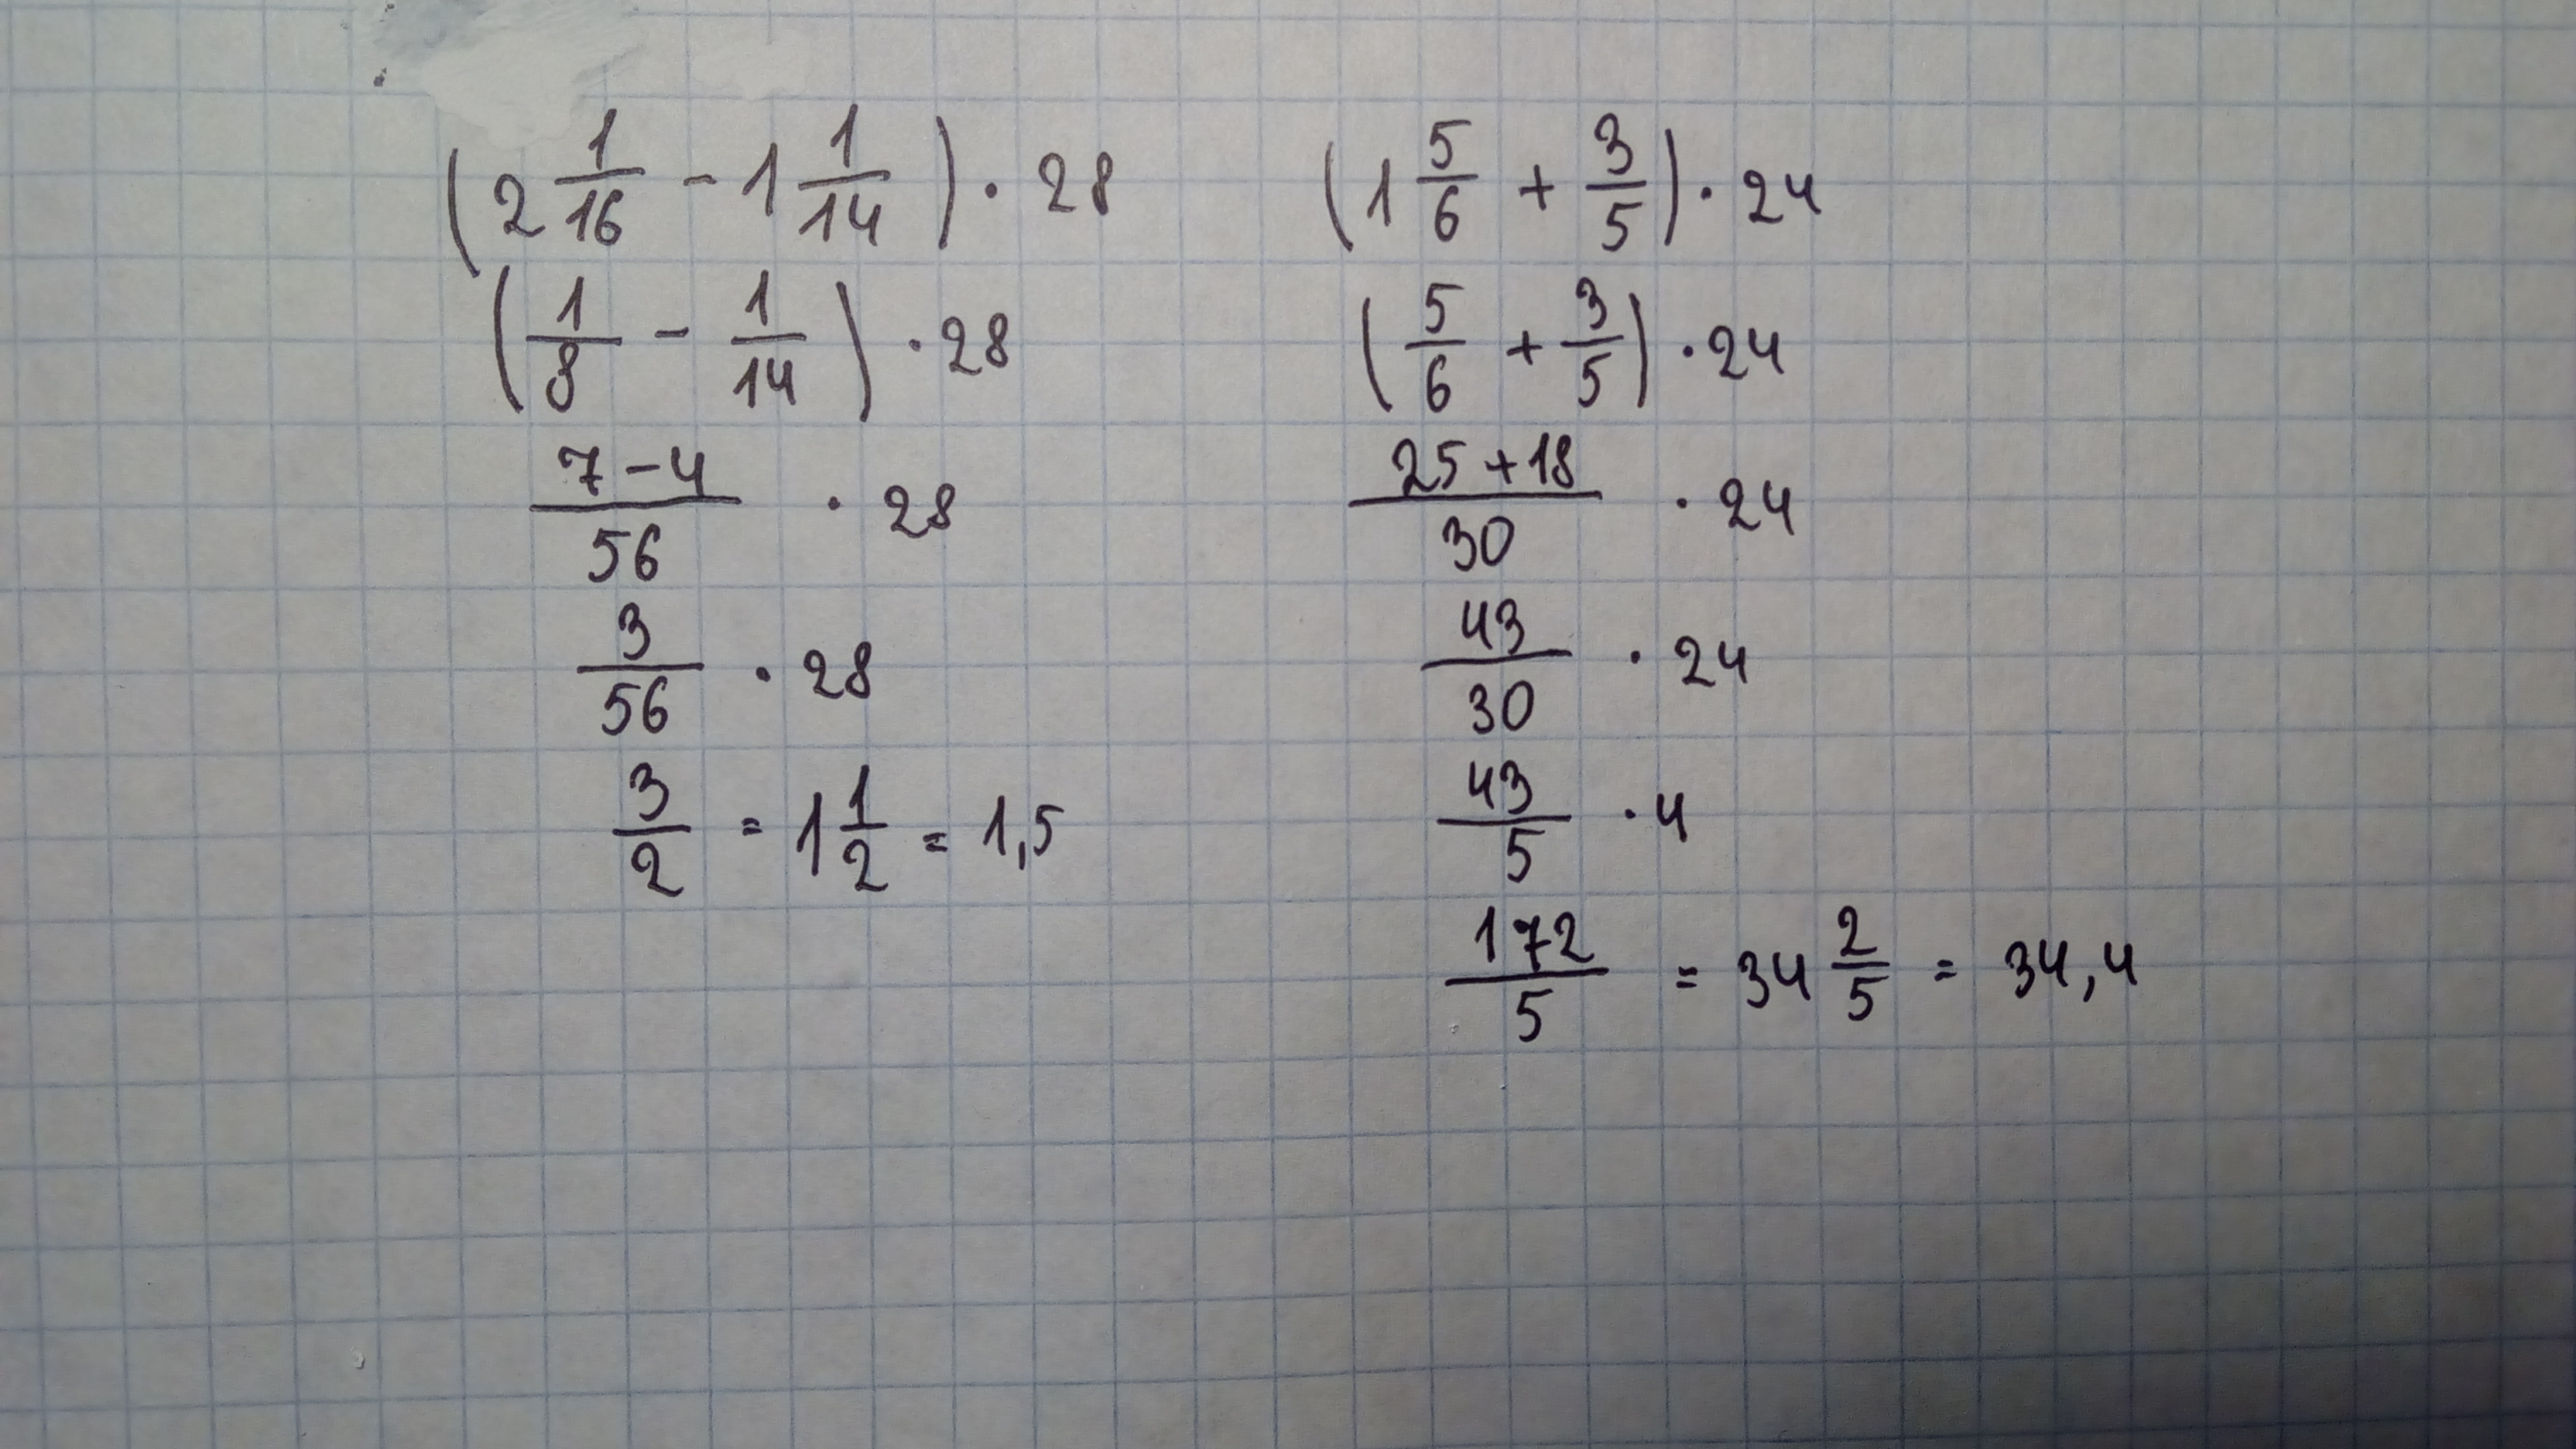 (2 1/16 - 1 1/14) · 28
(1/8 - 1/14) · 28
7-4/56 · 28
3/56 · 28
3/2 = 1 1/2 = 1,5
(1 5/6 + 3/5) · 24
(5/6 + 3/5) · 24
25+18/30 · 24
43/30 · 24
43/5 · 4
172/5 = 34 2/5 = 34,4